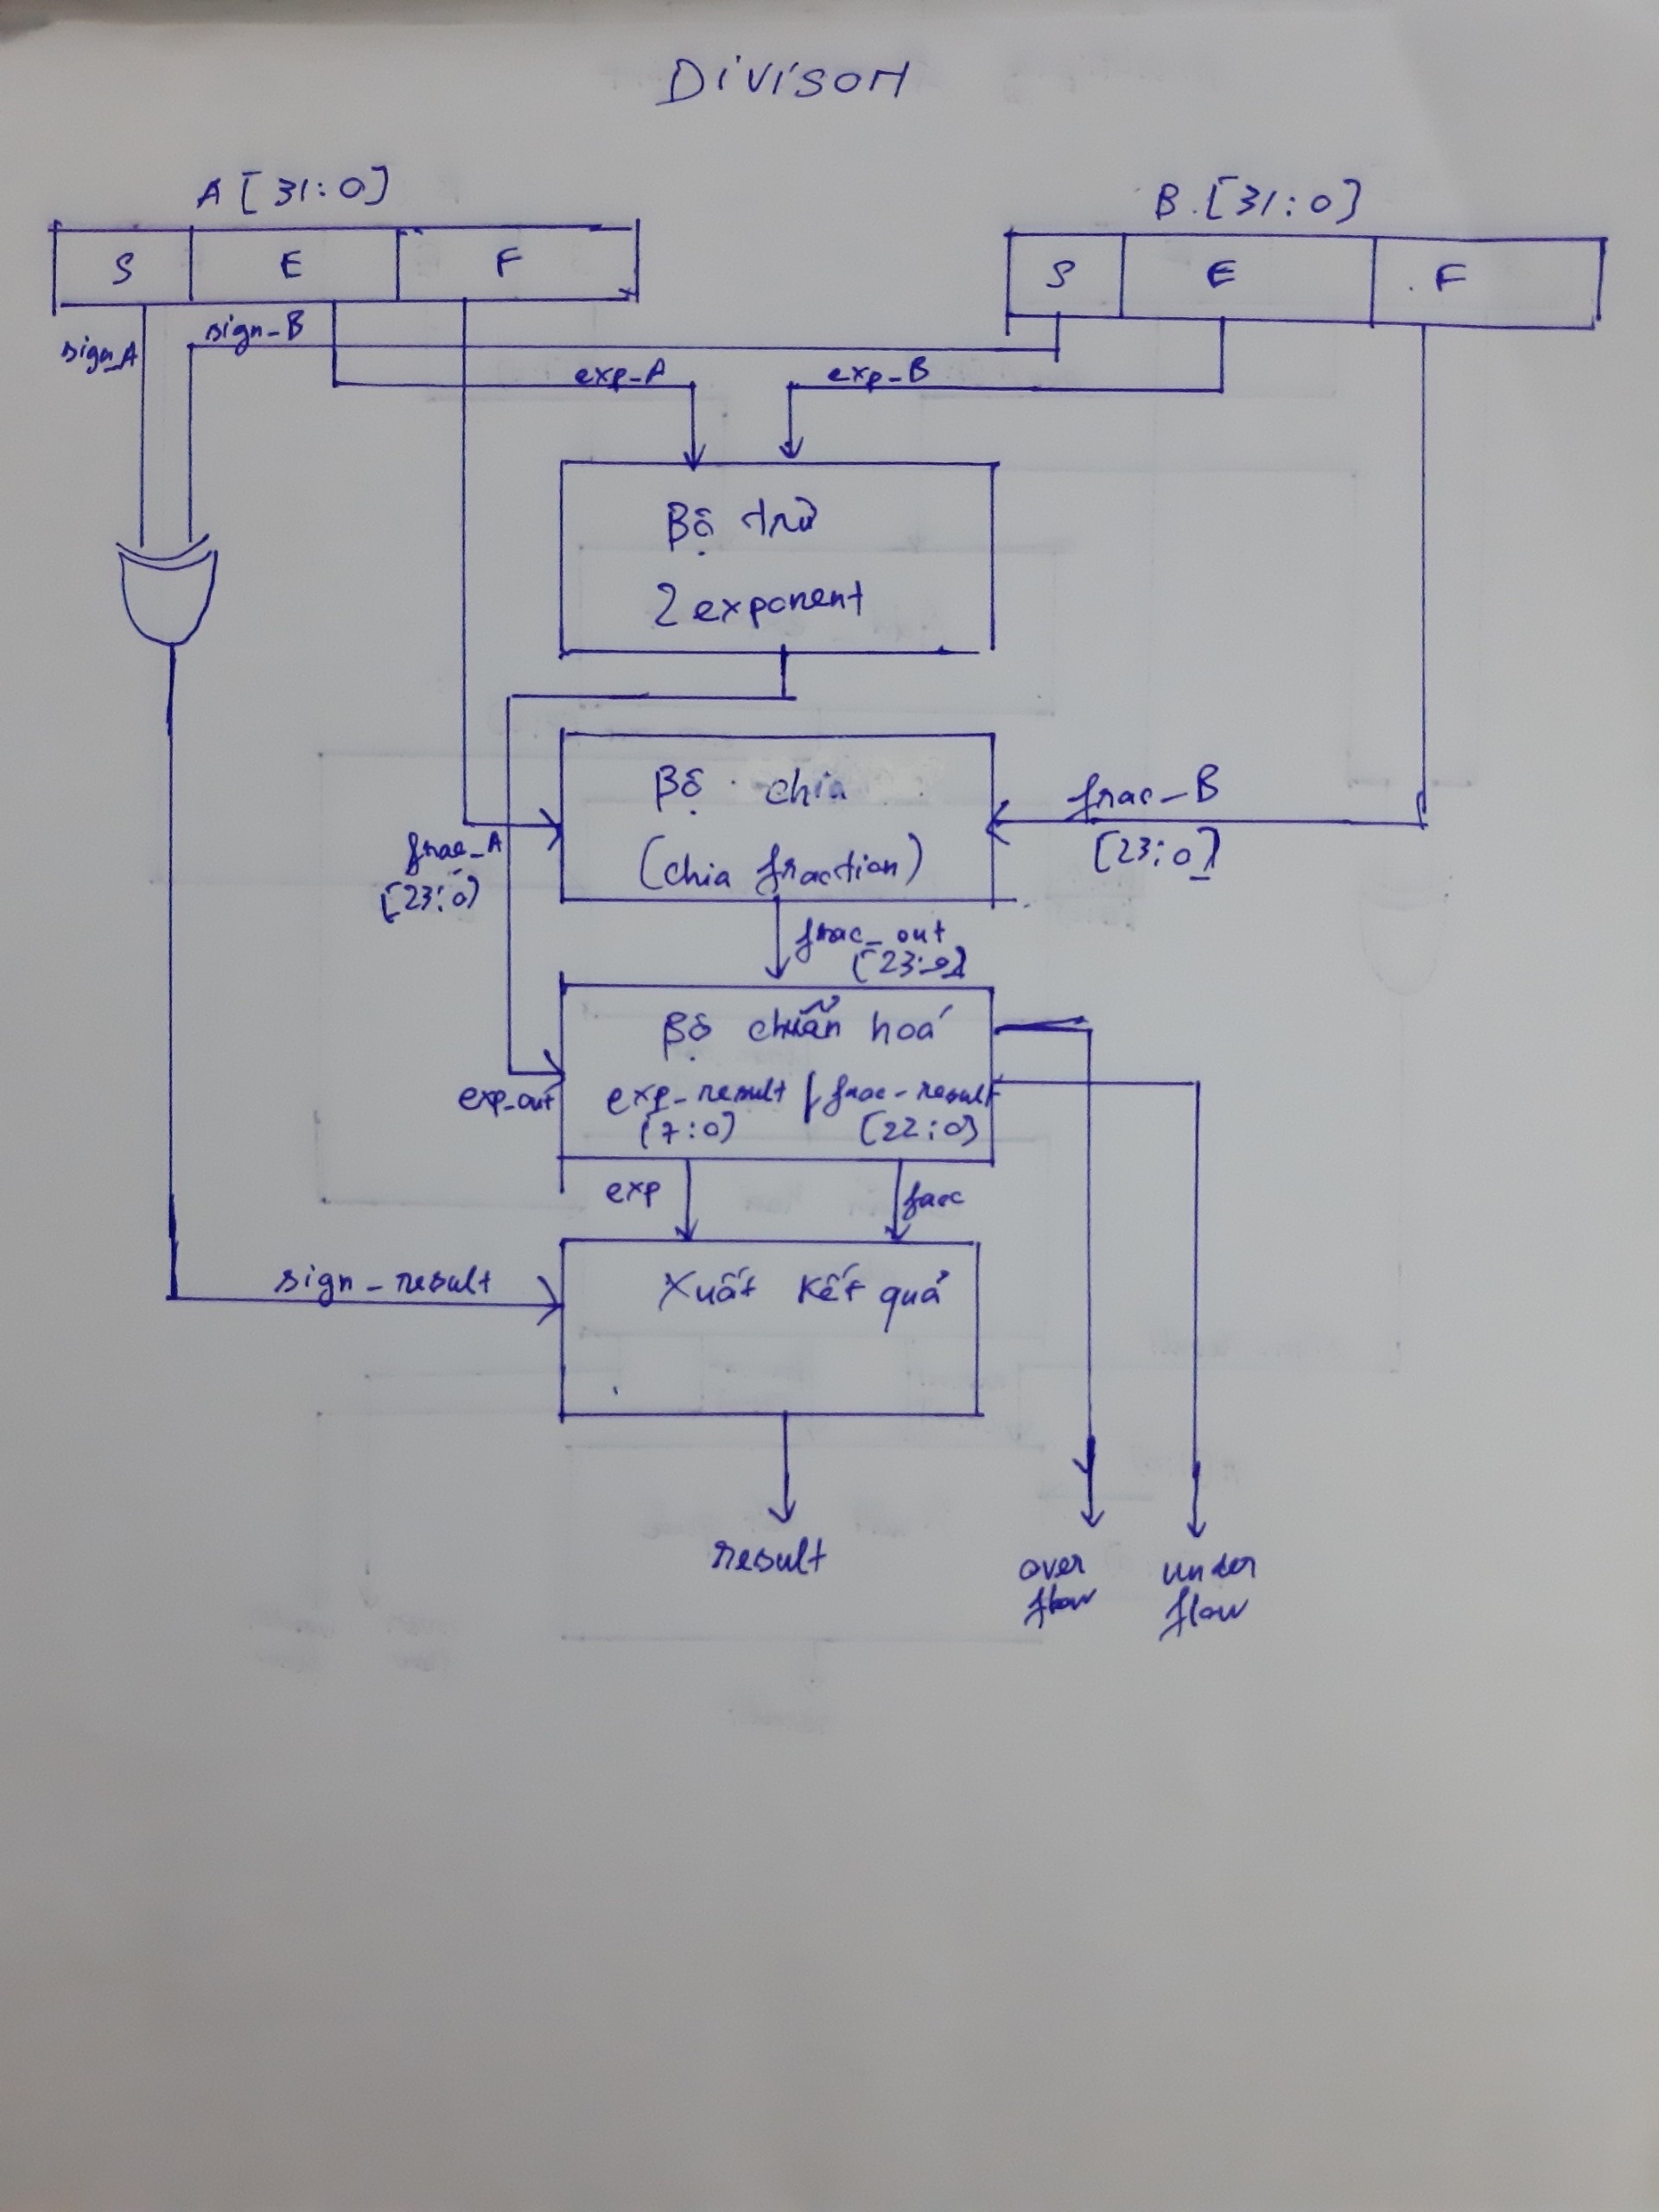 Divison
A[31:0]
B.[31:0]
S E F
S E F
sign_A
sign_B
exp_A
exp_B
Bộ trừ
2 exponent
Bộ chia
(chia fraction)
frac_A
[23:0)
frac_B
[23:0]
frac_out
[23:0]
Bộ chuẩn hoá
exp_out
exp_result | frac_result
[7:0) [22:0]
exp
frac
sign_result
Xuất kết quả
result
over
flow
under
flow